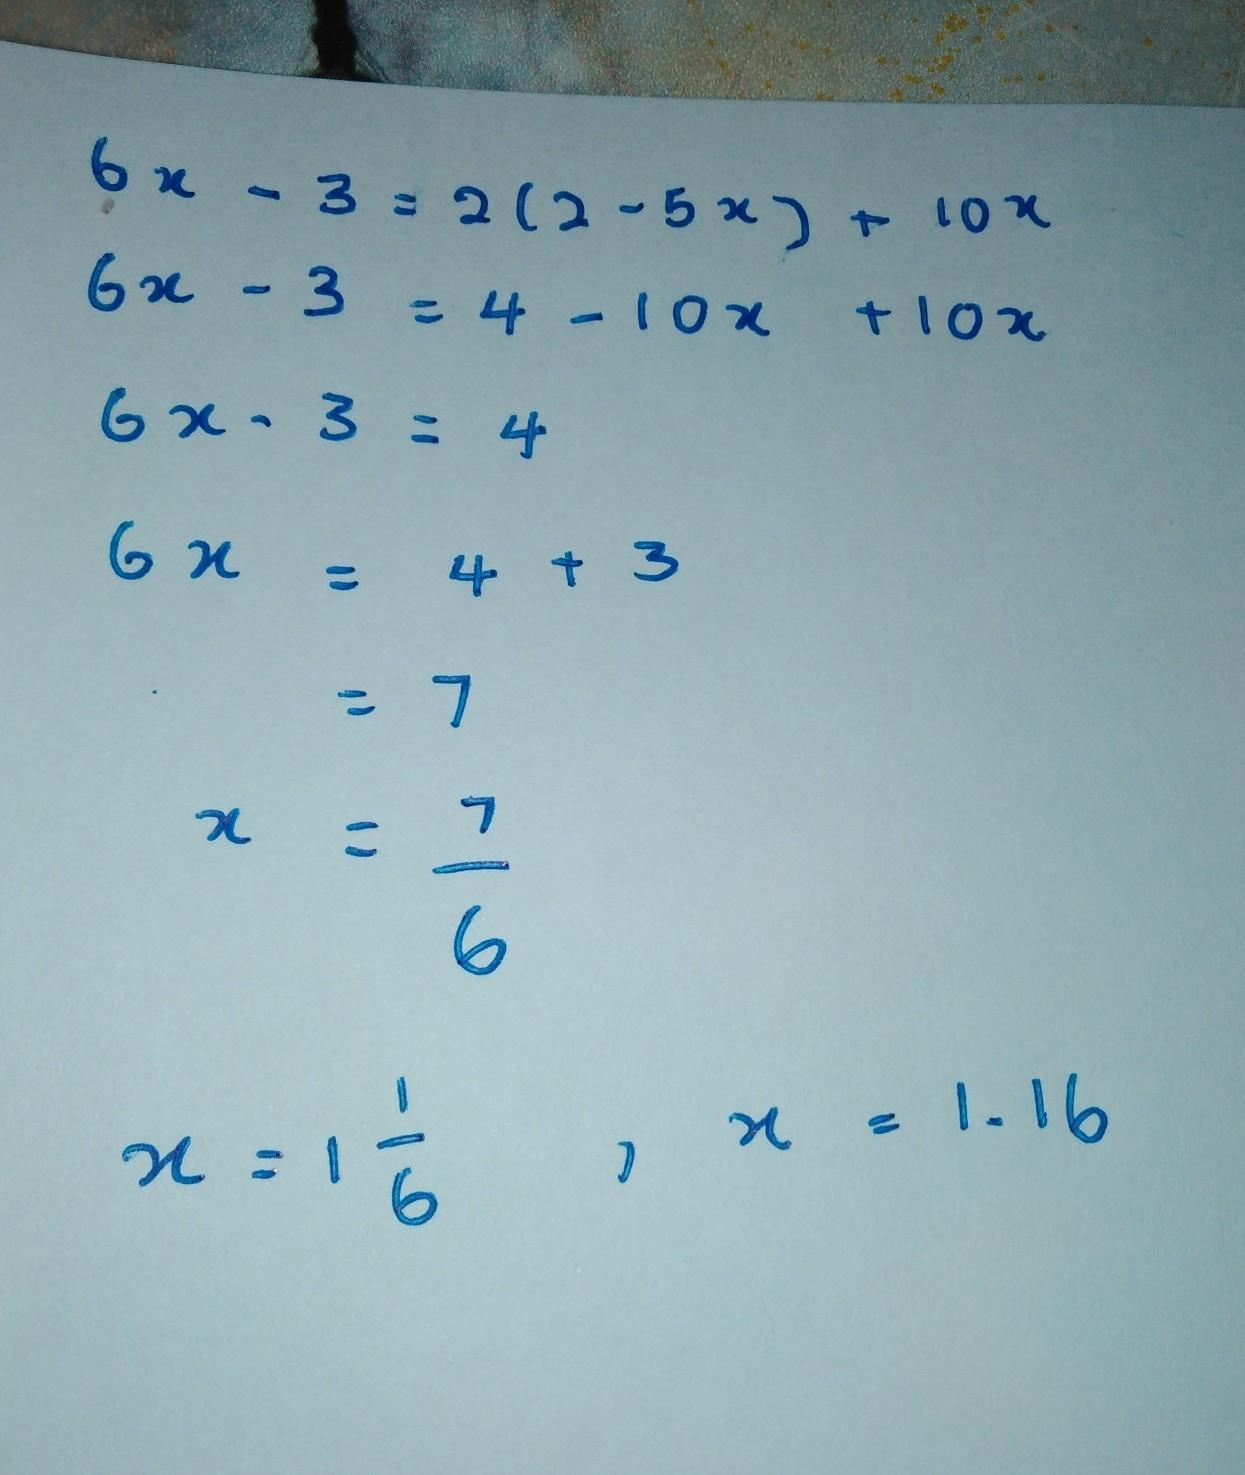 6x - 3 = 2(2 - 5x) + 10x
6x - 3 = 4 - 10x + 10x
6x - 3 = 4
6x = 4 + 3
= 7
x = 7/6
x = 1 1/6 , x = 1.16